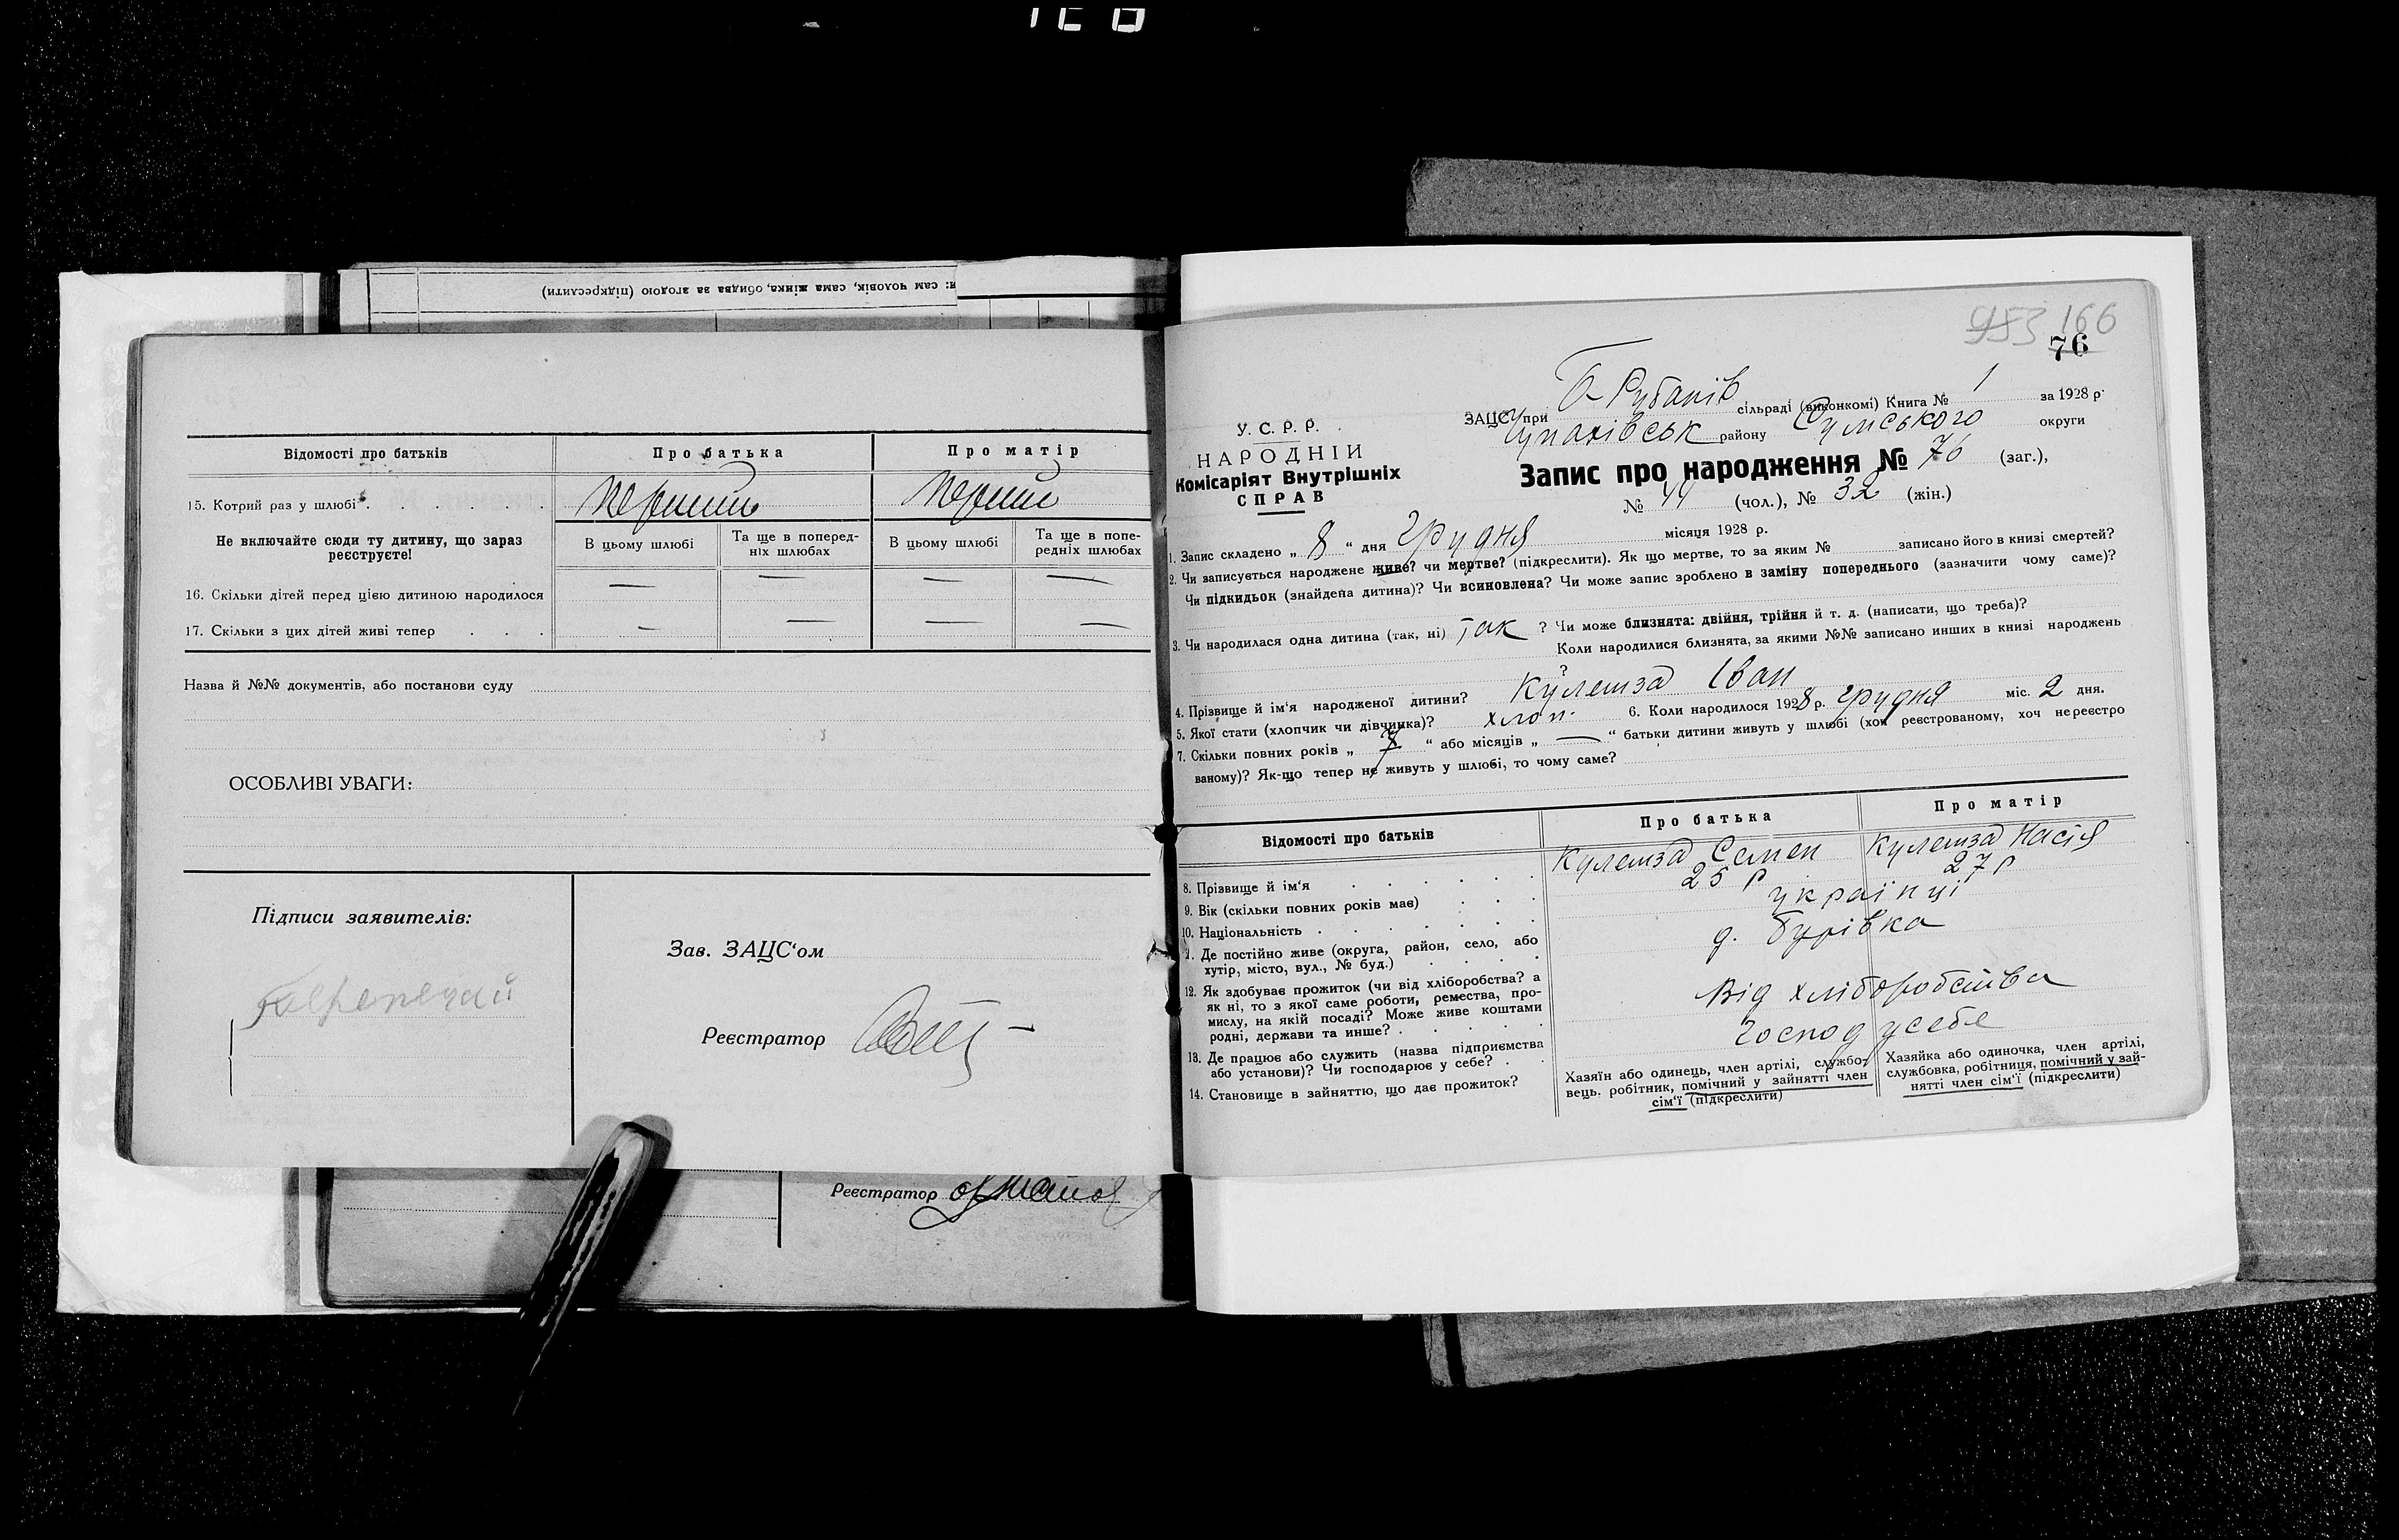 и: сам чоловік, сама жінка, обидва за згодою (підкреслити)
Відомості про батьків
Про батька
Про матір
15. Котрий раз у шлюбі . . . . . .
перший
перший
Не включайте сюди ту дитину, що зараз реєструєте!
В цьому шлюбі
Та ще в попередніх шлюбах
В цьому шлюбі
Та ще в попередніх шлюбах
16. Скільки дітей перед цією дитиною народилося
— — — —
17. Скільки з цих дітей живі тепер . . .
— — — —
Назва й №№ документів, або постанови суду
ОСОБЛИВІ УВАГИ:
Підписи заявителів:
Зав. ЗАЦС'ом
Реєстратор
Реєстратор
953 166
76
У. С. Р. Р.
НАРОДНІЙ
Комісаріят Внутрішніх
СПРАВ
ЗАЦС при Б-Рубанів сільраді (виконкомі) Книга № 1 за 1928 р.
Чупахівськ району Сумського округи
Запис про народження № 76 (заг.),
№ 44 (чол.), № 32 (жін.)
1. Запис складено „ 8 “ дня Грудня місяця 1928 р.
2. Чи записується народжене живе? чи мертве? (підкреслити). Як що мертве, то за яким № записано його в книзі смертей?
Чи підкидьок (знайдена дитина)? Чи всиновлена? Чи може запис зроблено в заміну попереднього (зазначити чому саме)?
3. Чи народилася одна дитина (так, ні) так ? Чи може близнята: двійня, трійня й т. д. (написати, що треба)?
Коли народилися близнята, за якими №№ записано инших в книзі народжень
?
4. Прізвище й ім'я народженої дитини? Кулешза Іван
5. Якої стати (хлопчик чи дівчинка)? хлоп. 6. Коли народилося 1928 р. грудня міс. 2 дня.
7. Скільки повних років „ “ або місяців „ — “ батьки дитини живуть у шлюбі (хоч реєстрованому, хоч нереєстро
ваному)? Як-що тепер не живуть у шлюбі, то чому саме?
Відомості про батьків
Про батька
Про матір
8. Прізвище й ім'я . . . . . .
Кулешза Семен
Кулешза Насія
9. Вік (скільки повних років має) . . .
25 р
27 р
10. Національність . . . . . .
українці
11. Де постійно живе (округа, район, село, або
хутір, місто, вул., № буд.) . . . .
д. Бурівка
12. Як здобуває прожиток (чи від хліборобства? а
як ні, то з якої саме роботи, ремества, про-
мислу, на якій посаді? Може живе коштами
родні, держави та инше? . . . . .
Від хліборобства
13. Де працює або служить (назва підприємства
або установи)? Чи господарює у себе? . .
Господ у себе
14. Становище в зайняттю, що дає прожиток?
Хазяїн або одинець, член артілі, службо-
вець, робітник, помічний у зайнятті член
сім'ї (підкреслити)
Хазяйка або одиночка, член артілі,
службовка, робітниця, помічний у зай-
нятті член сім'ї (підкреслити)